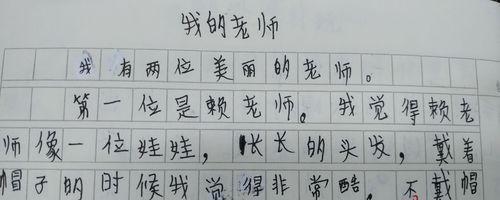 我的老师
我有两位美丽的老师。
第一位是赖老师。我觉得赖老
师像一位娃娃，长长的头发，戴着
帽子的时候我觉得非常酷，不戴帽